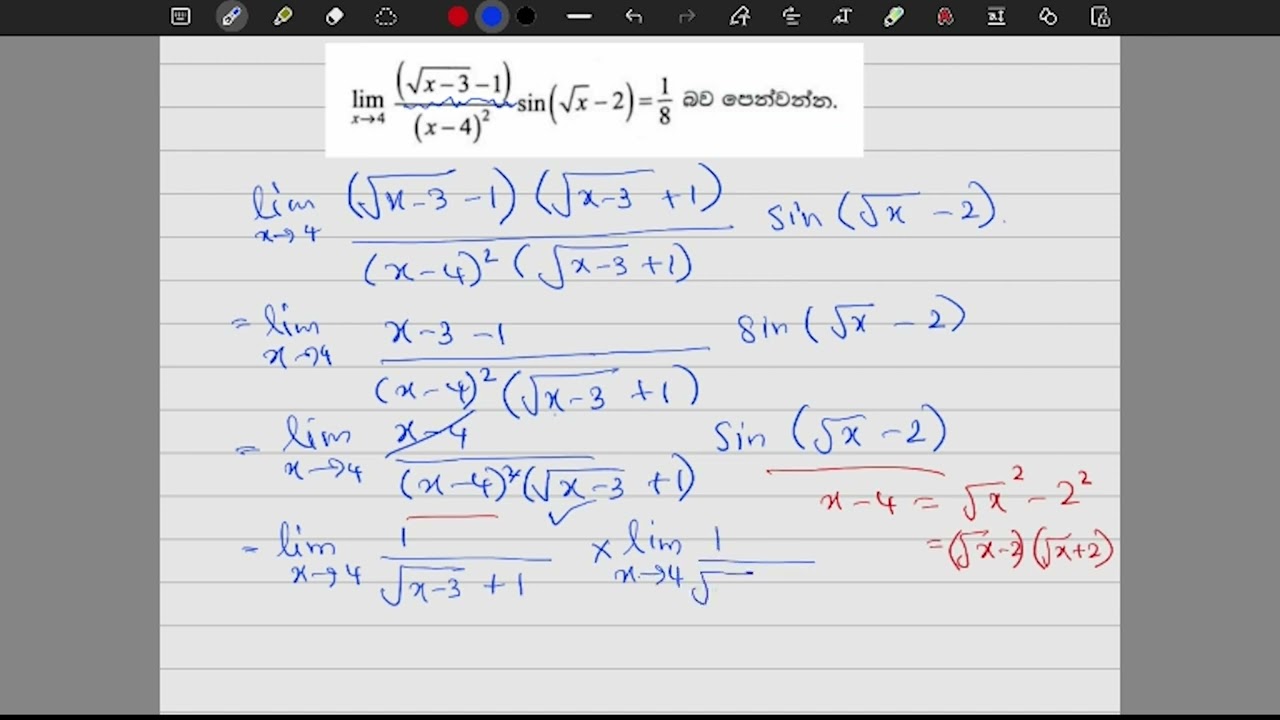 lim x→4 (√x−3 −1)/(x−4)² sin(√x −2) = 1/8 බව පෙන්වන්න.
lim x→4 (√x−3 −1)(√x−3 +1)/(x−4)² (√x−3 +1) sin(√x −2).
= lim x→4 x−3−1/(x−4)² (√x−3 +1) sin(√x −2)
= lim x→4 x−4/(x−4)² (√x−3 +1) sin(√x −2)
x−4 = √x² − 2²
= (√x−2)(√x+2)
= lim x→4 1/√x−3 +1 × lim x→4 1/√